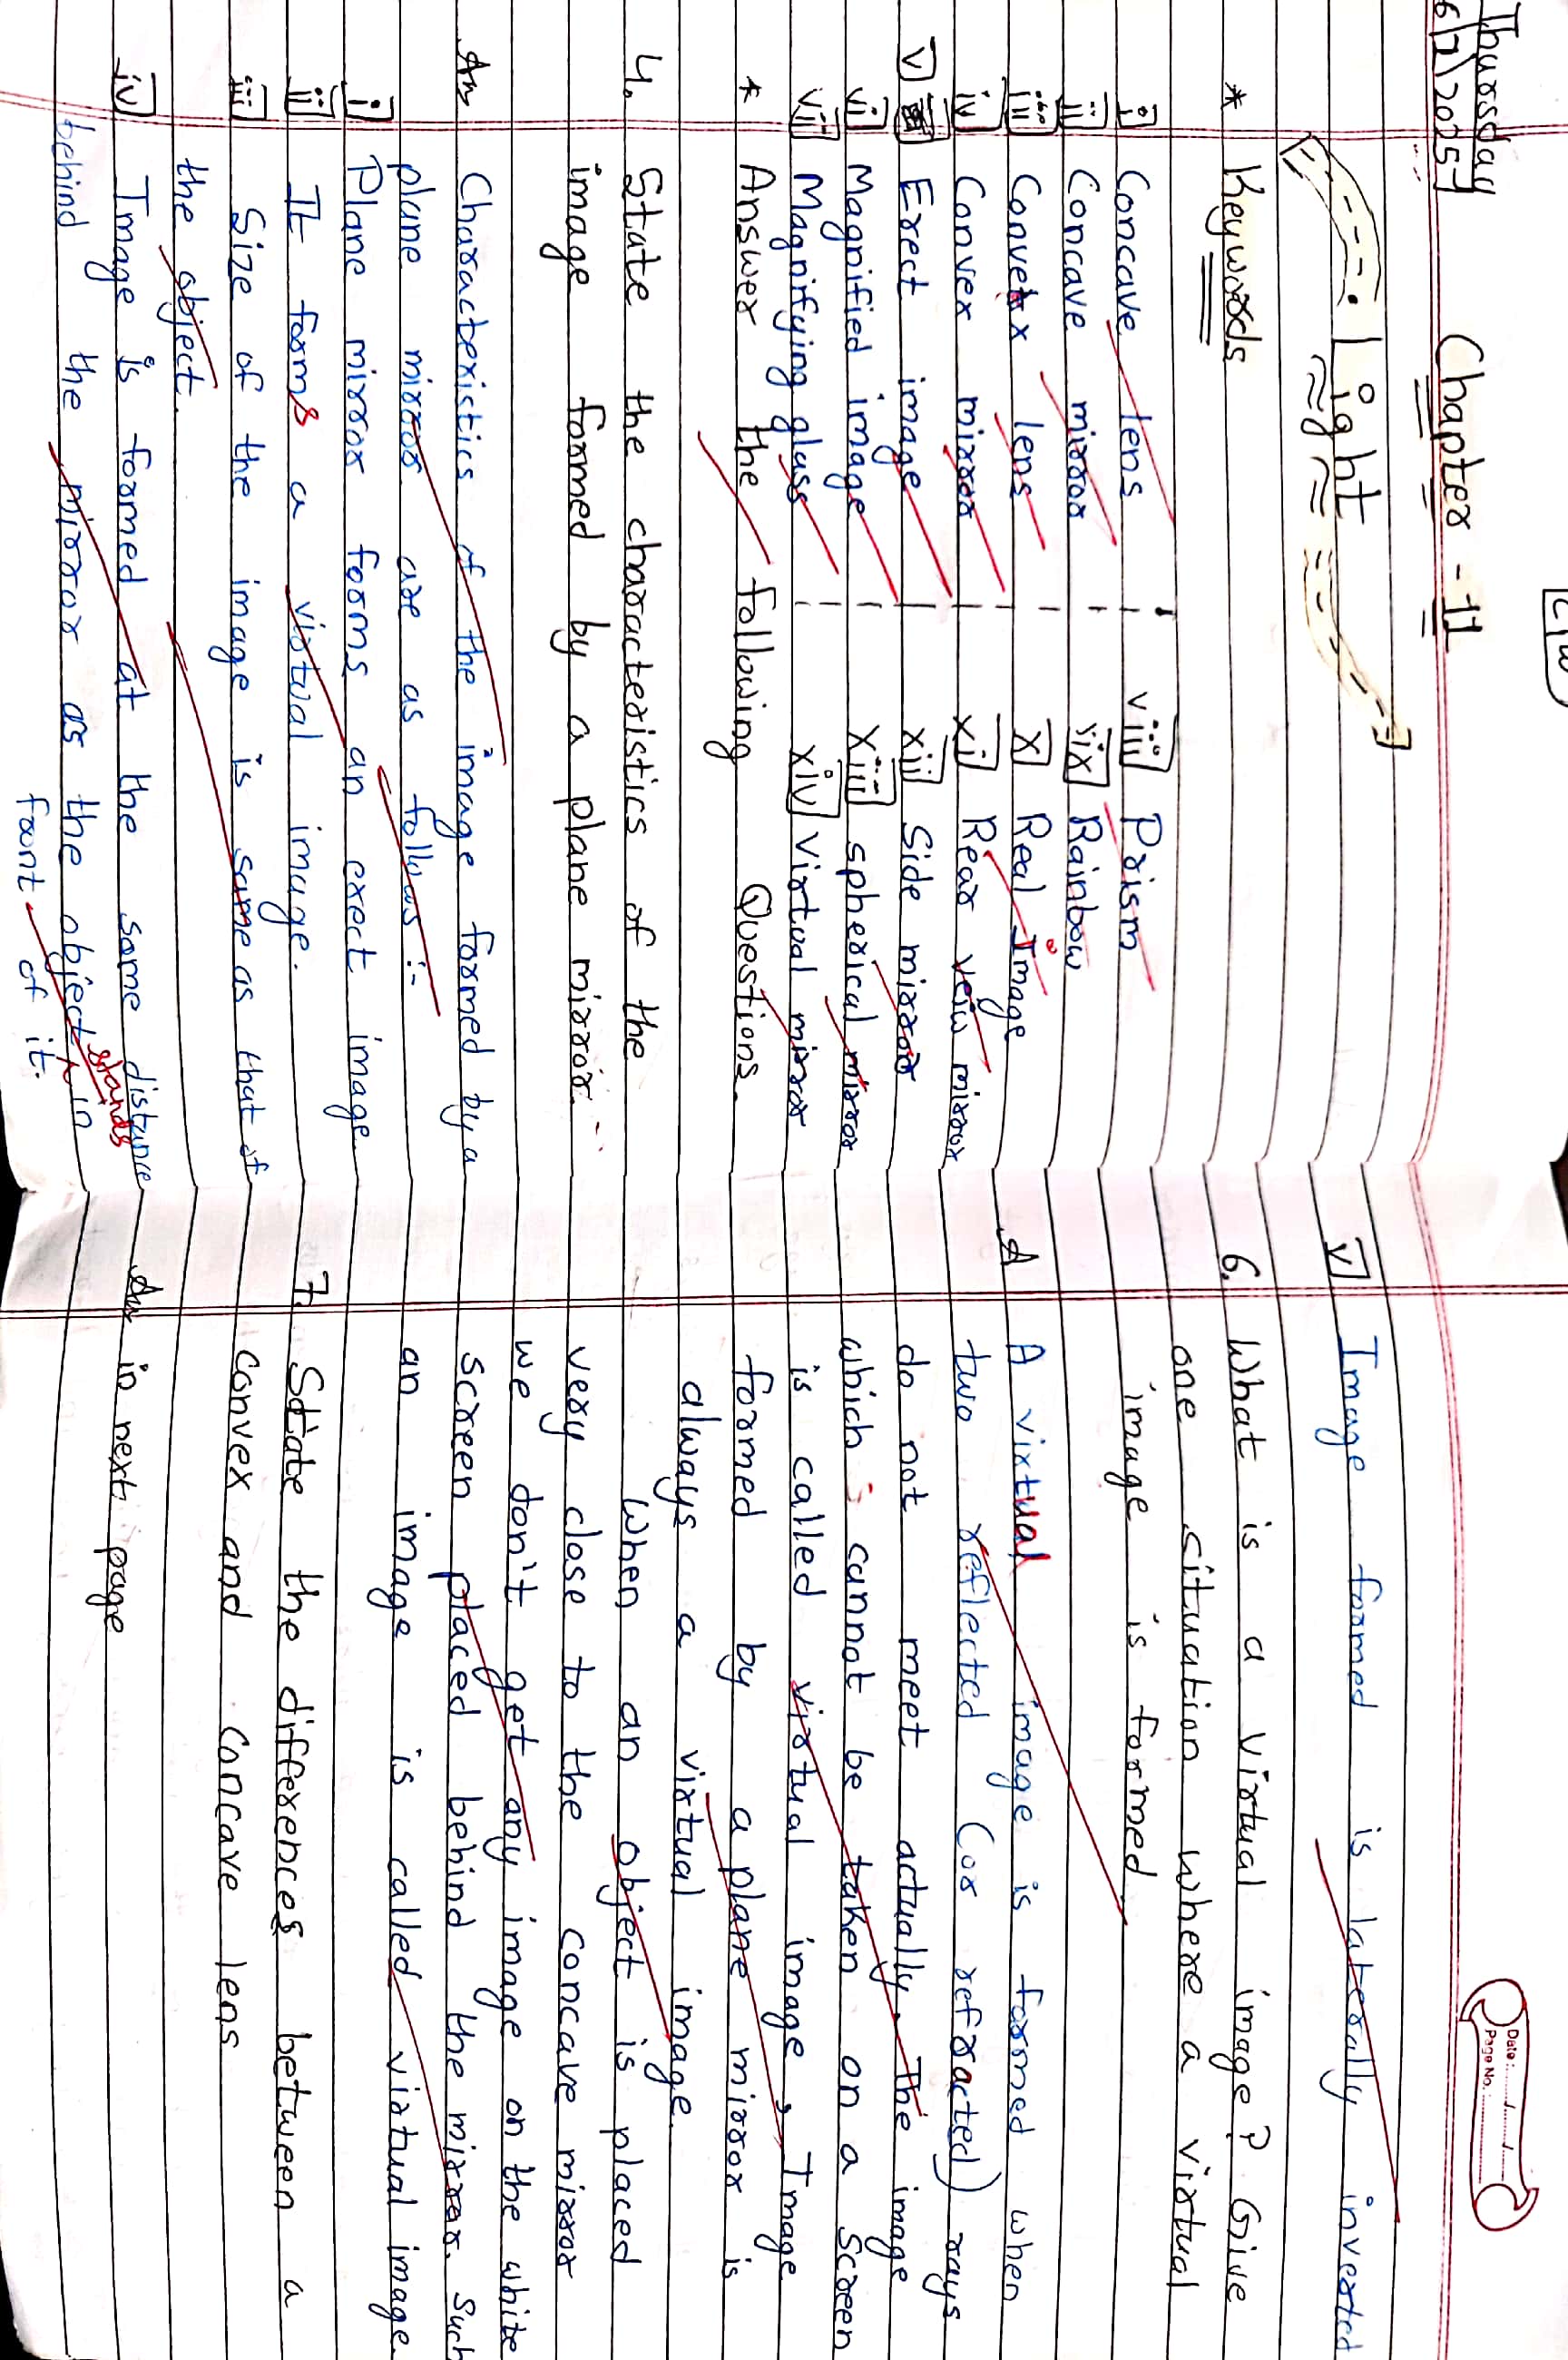 C.W
Thursday
Chapter - 11
Light
* Keywords
i] Concave lens
ii] Concave mirror
iii] Convex lens
iv] Convex mirror
v] Erect image
vi] Magnified image
vii] Magnifying glass
viii] Prism
vix] Rainbow
x] Real Image
xi] Rear veiw mirror
xii] Side mirror
xiii] spherical mirror
xiv] Virtual mirror
* Answer the following Questions.
4. State the characteristics of the
image formed by a plane mirror.
Ans Characteristics of the image formed by a
plane mirror are as follows :-
i] Plane mirror forms an erect image
ii] It forms a virtual image.
iii] Size of the image is same as that of
the object.
iv] Image is formed at the same distance
behind the mirror as the object stands in
front of it.
Date : ....../....../......
Page No. :
v] Image formed is laterally inverted
6. What is a virtual image? Give
one situation where a virtual
image is formed
A A virtual image is formed when
two reflected (or refracted) rays
do not meet actually. The image
which cannot be taken on a screen
is called virtual image, Image
formed by a plane mirror is
always a virtual image.
When an object is placed
very close to the concave mirror
we don't get any image on the white
screen placed behind the mirror. Such
an image is called virtual image.
7. State the differences between a
convex and concave lens
Ans in next page